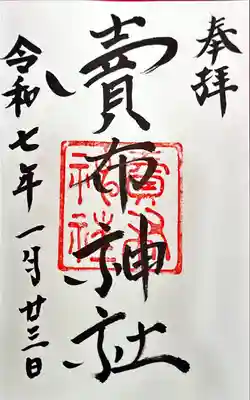 奉拝
賣布神社
賣布神社
令和七年一月廿三日